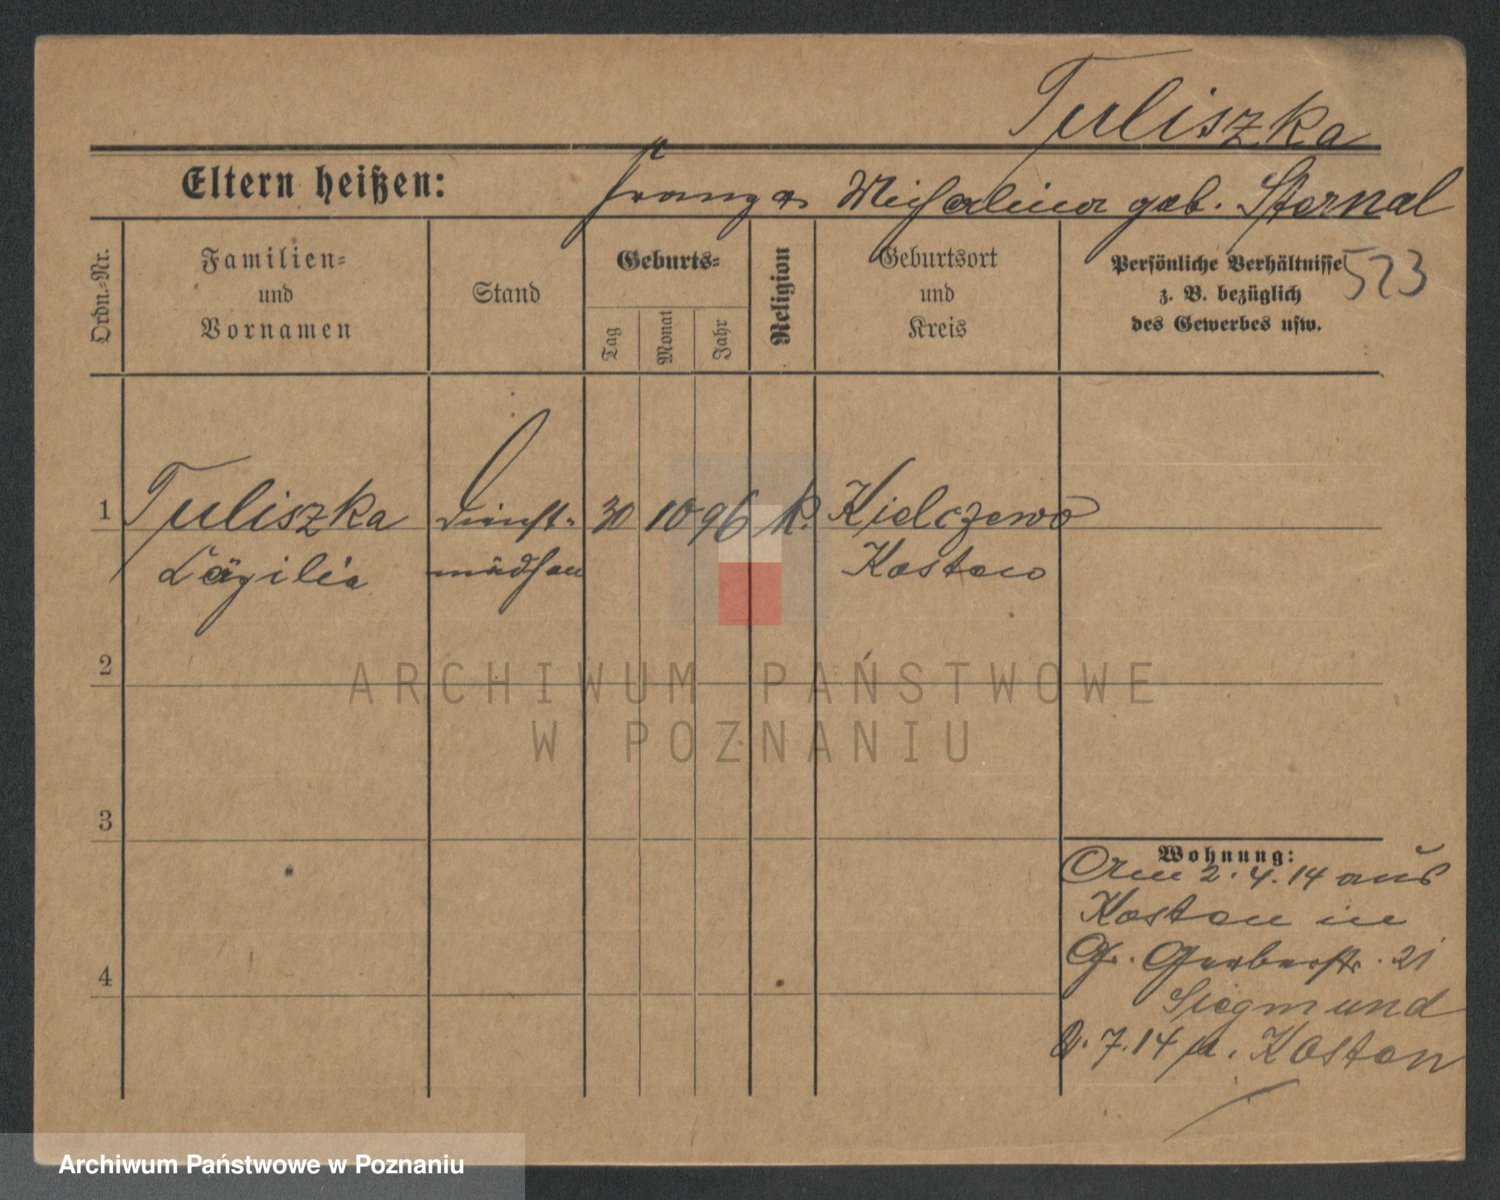 Tuliszka
Eltern heißen: Franz u. Michalina geb. Stornal
Ordn.-Nr.
Familien-
und
Vornamen
Stand
Geburts-
Tag
Monat
Jahr
Religion
Geburtsort
und
Kreis
Persönliche Verhältnisse
z. B. bezüglich
des Gewerbes usw.
523
1 Tuliszka Dienst- 30 10 96 k. Kielczewo
Cäzilia mädchen Kosten
2
3
4
Wohnung:
2.4.14 aus
Kosten in
Gr. Gerberstr. 21
Siegmund
7.14 n. Kosten
ARCHIWUM PAŃSTWOWE
W POZNANIU
Archiwum Państwowe w Poznaniu